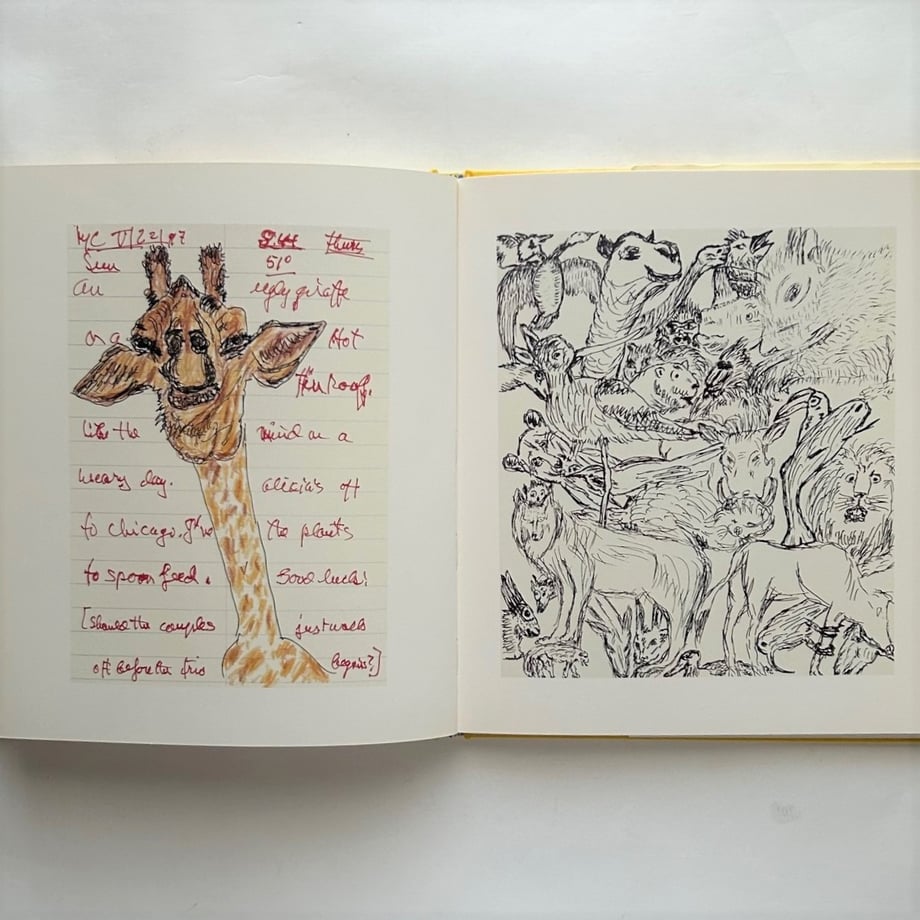 NYC V/22/97 Thurs
Sun 51°
an ugly giraffe
on a Hot
Tin Roof.
like the mind on a
weary day. alicia's off
to Chicago. I've the plants
to spoon feed. Good luck!
[should the couples just walk
off before the trio begins?]